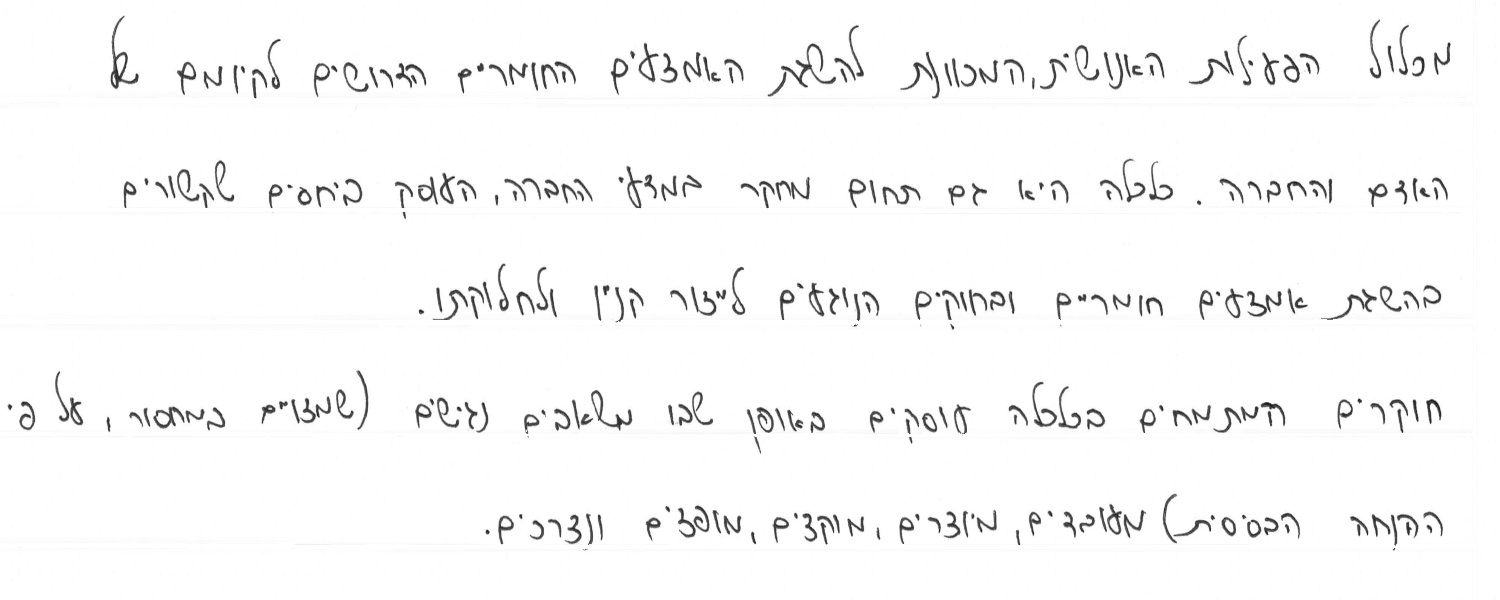 מכלול הפעילות האנושית, המכוונת להשגת האמצעים החומריים הדרושים לקיומם של
האדם והחברה. כלכלה היא גם תחום מחקר במדעי החברה, העוסק ביחסים שקשורים
בהשגת אמצעים חומריים ובחוקים הנוגעים לייצור קניין ולחלוקתו.
חוקרים המתמחים בכלכלה עוסקים באופן שבו משאבים נגישים (שמצויים במחסור, על פי
ההנחה הבסיסית) מעובדים, מיוצרים, מוקצים, מופצים ונצרכים.